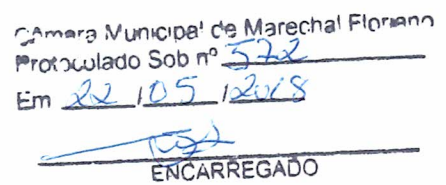 Câmara Municipal de Marechal Floriano
Protocolado Sob nº 572
Em 22 / 05 / 2018
ENCARREGADO